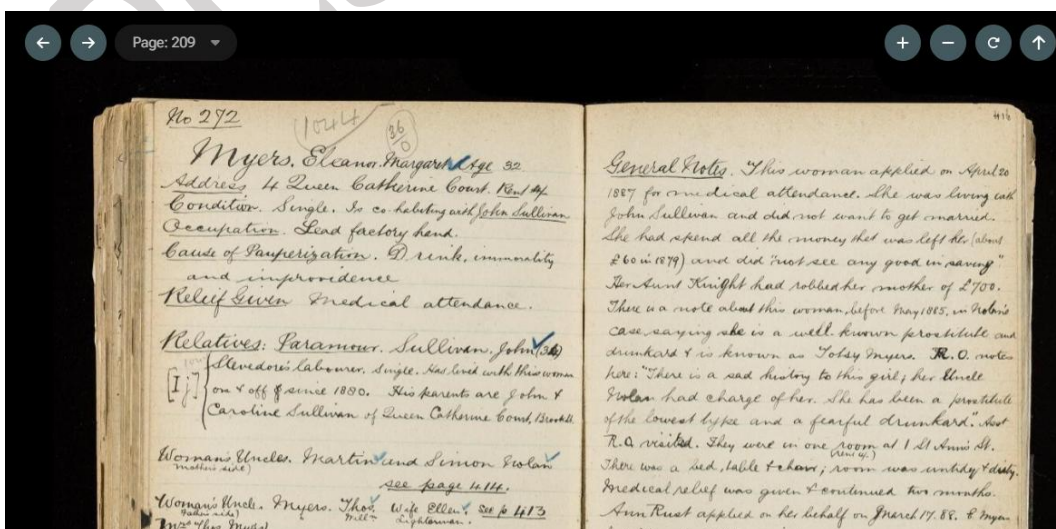 Page: 209
No 272
1044
36
0
Myers. Eleanor Margaret Age 32
Address 4 Queen Catherine Court. Rent 4/
Condition. Single. Is co-habiting with John Sullivan
Occupation. Lead factory hand.
Cause of Pauperization. Drink, immorality
and improvidence
Relief Given Medical attendance.
Relatives: Paramour. Sullivan, John (36)
Stevedore's labourer, Single. Has lived with this woman
on & off since 1880. His parents are John &
Caroline Sullivan of Queen Catherine Court,
Woman's Uncles. Martin and Simon Nolan
mother's side)
see page 414.
Woman's Uncle. Myers. Thos. Wife Ellen. see p 413
father's side) Lighterman.
Mrs Thos. Myers)
General Notes. "This woman applied on April 20
1887 for medical attendance. She was living with
John Sullivan and did not want to get married.
She had spend all the money that was left her (about
£60 in 1879) and did "not see any good in saving"
Her Aunt Knight had robbed her mother of £700.
There is a note about this woman, before May 1885, in Nolan's
case saying she is a well-known prostitute and
drunkard & is known as Totsy Myers. R.O. notes
here: "There is a sad history to this girl; her Uncle
Nolan had charge of her. She has been a prostitute
of the lowest type and a fearful drunkard". Asst
R.O. visited. They were in one room at 1 St Ann's St.
(rent 4/.)
There was a bed, table & chair; room was untidy & dirty.
Medical relief was given & continued two months.
Ann Rust applied on her behalf on March 17. 88. E. Myers